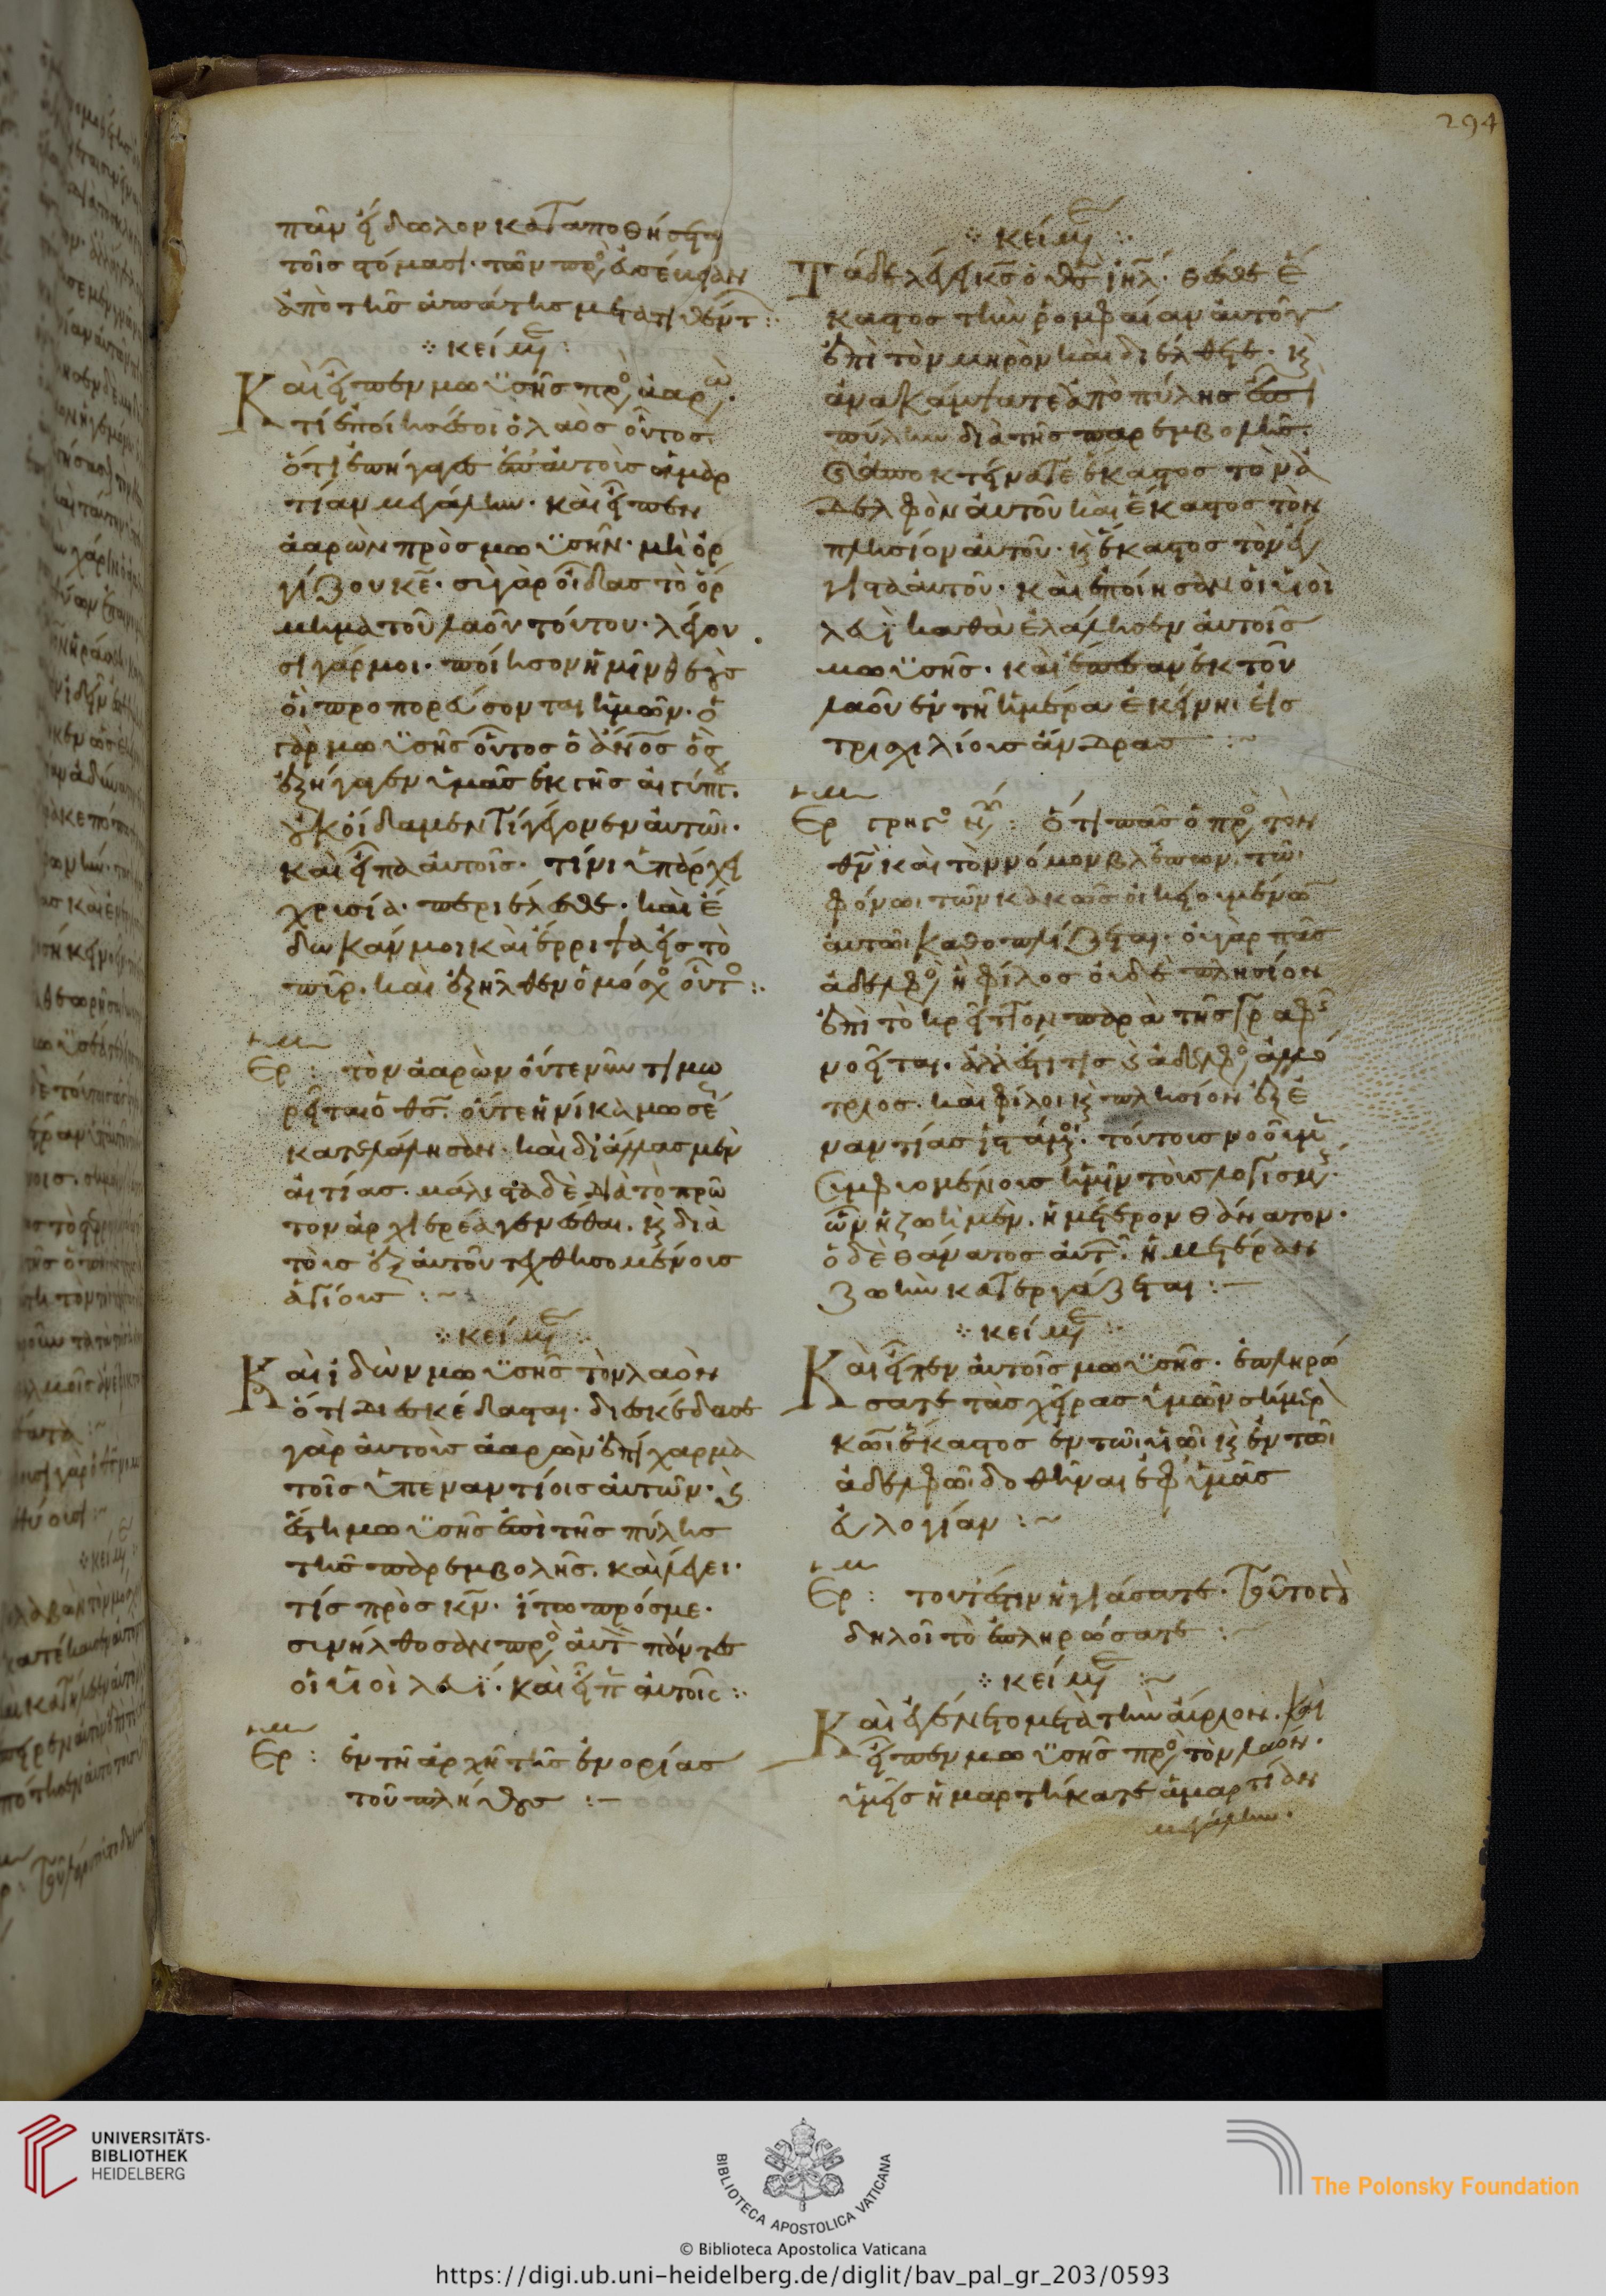 294
πᾶν εἴδωλον καταποθήσεται
τοῖς στόμασι τῶν πρὸς εὐσέβειαν
ἀπὸ τῆς ἀπάτης μετατιθέντ
κείμε
Καὶ εἶπεν μωϋσῆς πρὸς ἀαρὼ
τί ἐποίησέ σοι ὁ λαὸς οὗτος
ὅτι ἐπήγαγες ἐπ αὐτοὺς ἁμαρ
τίαν μεγάλην. καὶ εἶπεν
ἀαρὼν πρὸς μωϋσῆν. μὴ ὀρ
γίζου κε. σὺ γὰρ οἶδας τὸ ὅρ
μημα τοῦ λαοῦ τούτου. λέγου
σι γάρ μοι. ποίησον ἡμῖν θεοὺς
οἳ προπορεύσονται ἡμῶν. ὁ
γὰρ μωϋσῆς οὗτος ὁ ἄνος ὃς
ἐξήγαγεν ἡμᾶς ἐκ τῆς αἰγύπτ.
οὐκ οἴδαμεν τί γέγονεν αὐτῶι.
καὶ εἶπα αὐτοῖς. τίνι ὑπάρχει
χρυσία. περιέλεσθε. καὶ ἔ
δωκάν μοι καὶ ἔρριψα εἰς τὸ
πῦρ. καὶ ἐξῆλθεν ὁ μόσχος οὗτος
Ερμ: τὸν ἀαρὼν οὔτε νῦν τιμω
ρεῖται ὁ θς. οὔτε ἡνίκα μωσέ
κατελάλησαν. καὶ δι ἄλλας μὲν
αἰτίας. μάλιστα δὲ διὰ τὸ πρῶ
τον ἀρχιερέα γενέσθαι. κ διὰ
τοὺς ἐξ αὐτοῦ τεχθησομένους
ἁγίους
κείμε
Καὶ ἰδὼν μωϋσῆς τὸν λαὸν
ὅτι διεσκέδασται. διεσκέδασε
γὰρ αὐτοὺς ἀαρὼν ἐπίχαρμα
τοῖς ὑπεναντίοις αὐτῶν. κ
ἔστη μωϋσῆς ἐπὶ τῆς πύλης
τῆς παρεμβολῆς. καὶ λέγει.
τίς πρὸς κν. ἴτω πρός με.
συνήλθοσαν πρὸς αὐτ πάντες
οἱ υἱοὶ λευΐ. καὶ εἶπ αὐτοῖς
Ερμ: ἐν τῆ ἀρχῆ τῆς ἐνορίας
τοῦ πλήθους
κείμε
Τάδε λέγει κς ὁ θς ιηλ. θέσθε ἕ
καστος τὴν ῥομφαίαν αὐτοῦ
ἐπὶ τὸν μηρὸν καὶ διέλθετε. κ
ἀνακάμψατε ἀπὸ πύλης ἐπὶ
πύλην διὰ τῆς παρεμβολῆς.
κ ἀποκτείνατε ἕκαστος τὸν ἀ
δελφὸν αὐτοῦ καὶ ἕκαστος τὸν
πλησίον αὐτοῦ. κ ἕκαστος τὸν ἔγ
γιστα αὐτοῦ. καὶ ἐποίησαν οἱ υἱοὶ
λευῒ καθὰ ἐλάλησεν αὐτοῖς
μωϋσῆς. καὶ ἔπεσαν ἐκ τοῦ
λαοῦ ἐν τῆ ἡμέρα ἐκείνηι εἰς
τρισχιλίους ἄνδρας
Ερμ γρηγο νυ: ὅτι πᾶς ὁ πρὸς τὸν
θν καὶ τὸν νόμον βλέπων. τῶι
φόνωι τῶν κακῶς οἰκειουμένων
αὐτῶι καθοπλίζεται. οὐ γὰρ πᾶς
ἀδελφὸς ἢ φίλος οὐδὲ πλησίον
ἐπὶ τὸ κρεῖττον παρὰ τῆς γραφῆς
νοεῖται. ἀλλ ἔστι τις κ ἀδελφὸς ἀλλό
τριος. καὶ φίλοι κ πλησίον ἐξ ἐ
ναντίας ἱστάμενοι. τούτους νοοῦμεν
συμφυομένους ἡμῖν τοὺς λογισμούς.
ὧν ἡ ζωὴ μὲν. ἡμέτερον θάνατον.
ὁ δὲ θάνατος αὐτῶν. ἡμετέραν
ζωὴν κατεργάζεται
κείμε
Καὶ εἶπεν αὐτοῖς μωϋσῆς. ἐπληρώ
σατε τὰς χεῖρας ὑμῶν σήμερ
κωι ἕκαστος ἐν τῶι υἱῶι κ ἐν τῶι
ἀδελφῶι δοθῆναι ἐφ ὑμᾶς
εὐλογίαν
Ερμ: τουτέστιν ἡγιάσατε. τοῦτο γὰ
δηλοῖ τὸ ἐπληρώσατε
κείμε
Καὶ ἐγένετο μετὰ τὴν αὔριον. καὶ
εἶπεν μωϋσῆς πρὸς τὸν λαόν.
ὑμεῖς ἡμαρτήκατε ἁμαρτίαν
μεγάλην.
UNIVERSITÄTS-
BIBLIOTHEK
HEIDELBERG
BIBLIOTECA APOSTOLICA VATICANA
The Polonsky Foundation
© Biblioteca Apostolica Vaticana
https://digi.ub.uni-heidelberg.de/diglit/bav_pal_gr_203/0593